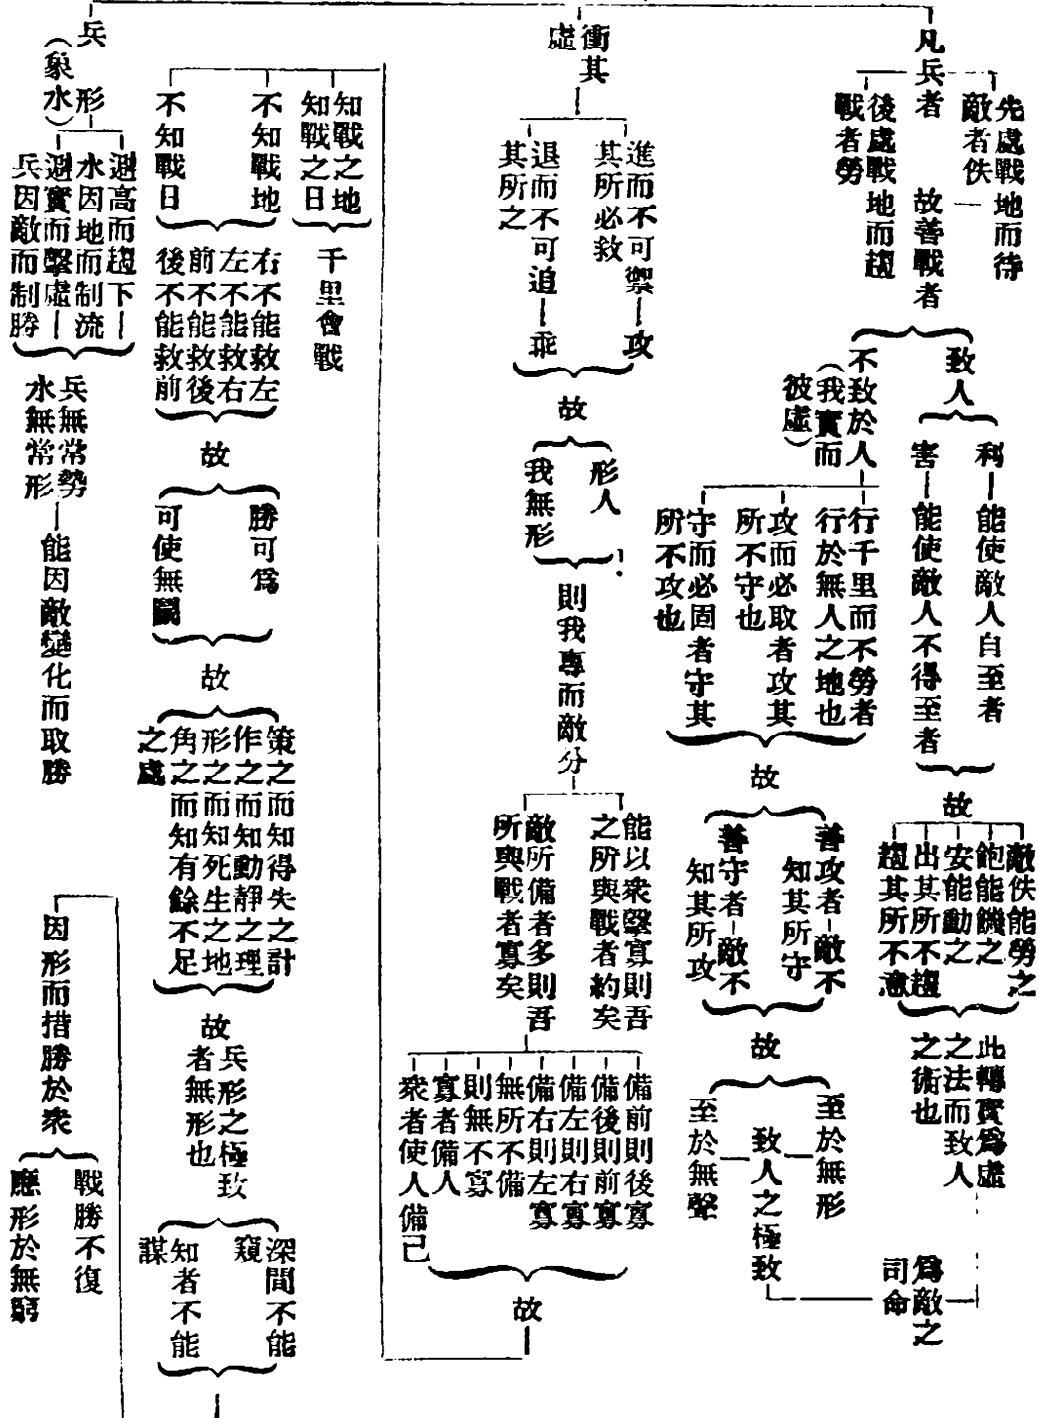 凡兵者
先處戰地而待
敵者佚
後處戰地而趨
戰者勞
故善戰者
致人
不致於人
（我實而
彼虛）
利
能使敵人自至者
害
能使敵人不得至者
故
敵佚能勞之
飽能饑之
安能動之
出其所不趨
趨其所不意
此轉實為虛
之法而致人
之術也
行千里而不勞者
行於無人之地也
攻而必取者攻其
所不守也
守而必固者守其
所不攻也
故
善攻者
敵不
知其所守
善守者
敵不
知其所攻
故
至於無形
至於無聲
致人之極致
爲敵之
司命
衝其
虛
進而不可禦
其所必救
攻
退而不可追
其所之
乖
故
形人
我無形
則我專而敵分
能以衆擊寡則吾
之所與戰者約矣
敵所備者多則吾
所與戰者寡矣
備前則後寡
備後則前寡
備左則右寡
備右則左寡
無所不備
則無不寡
寡者備人
衆者使人備己
故
知戰之地
知戰之日
千里會戰
不知戰地
不知戰日
右不能救左
左不能救右
前不能救後
後不能救前
故
勝可爲
可使無鬭
故
策之而知得失之計
作之而知動靜之理
形之而知死生之地
角之而知有餘不足
之處
故
兵形之極致
者無形也
深間不能
窺
知者不能
謀
因形而措勝於衆
戰勝不復
應形於無窮
兵形
（象水）
避高而趨下
水因地而制流
避實而擊虛
兵因敵而制勝
兵無常勢
水無常形
能因敵變化而取勝